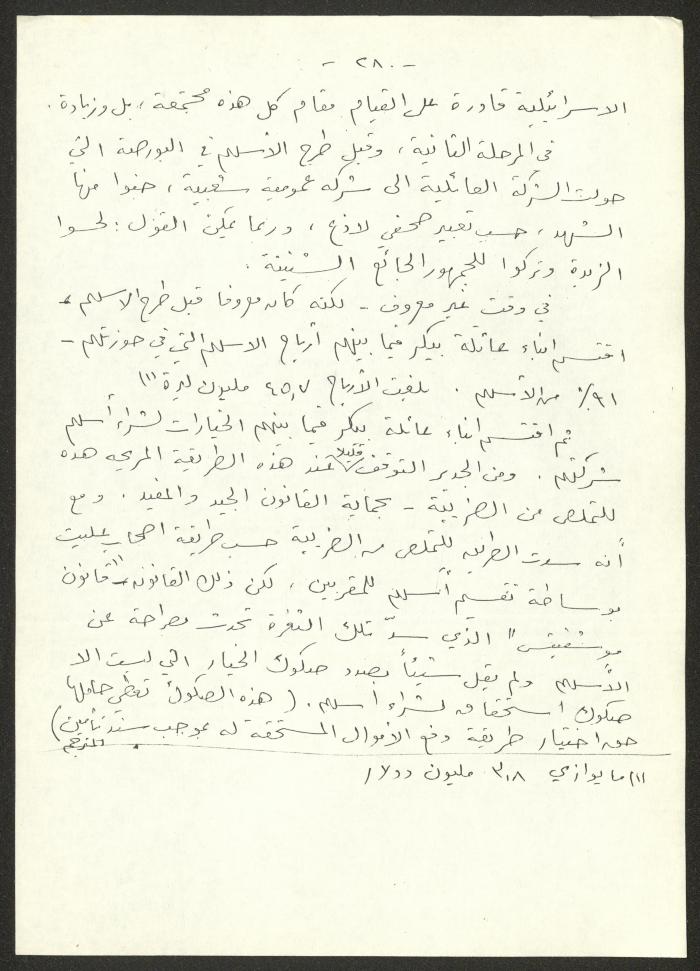 - ٢٨٠ -
الاسرائيلية قادرة على القيام مقام كل هذه مجتمعة ، بل وزيادة .
في المرحلة الثانية ، وقبل طرح الأسهم في البورصة التي
حولت الشركة العائلية الى شركة عمومية شعبية ، جنوا منها
الشهد ، حسب تعبير صحفي لاذع ، وربما يمكن القول : لحسوا
الزبدة وتركوا للجمهور الجائع الشنينة .
في وقت غير معروف - لكنه كان معروفا قبل طرح الاسهم -
اقتسم ابناء عائلة بيكر فيما بينهم أرباح الاسهم التي في حوزتهم -
٩١٪ من الأسهم . بلغت الأرباح ٤٥,٧ مليون ليرة (١)
ثم اقتسم ابناء عائلة بيكر فيما بينهم الخيارات لشراء أسهم
شركتهم . ومن الجدير التوقف قليلا عند هذه الطريقة المريحه هذه
للتملص من الضريبة - بحماية القانون الجيد والمفيد . ومع
أنه سدت الطريق للتملص من الضريبة حسب طريقة اصحاب عليت
بوساطة تقسيم أسهم للمقربين ، لكن ذلك القانون - "قانون
موسفيتس" الذي سدّ تلك الثغرة تحدث بصراحة عن
الأسهم ولم يقل شيئاً بصدد صكوك الخيار التي ليست الا
صكوك استحقاق لشراء أسهم . ( هذه الصكوك تعطي حاملها
حق اختيار طريقة دفع الأموال المستحقة له بموجب سند تأمين )
المترجم .
(١) ما يوازي ٣,٨ مليون دولار